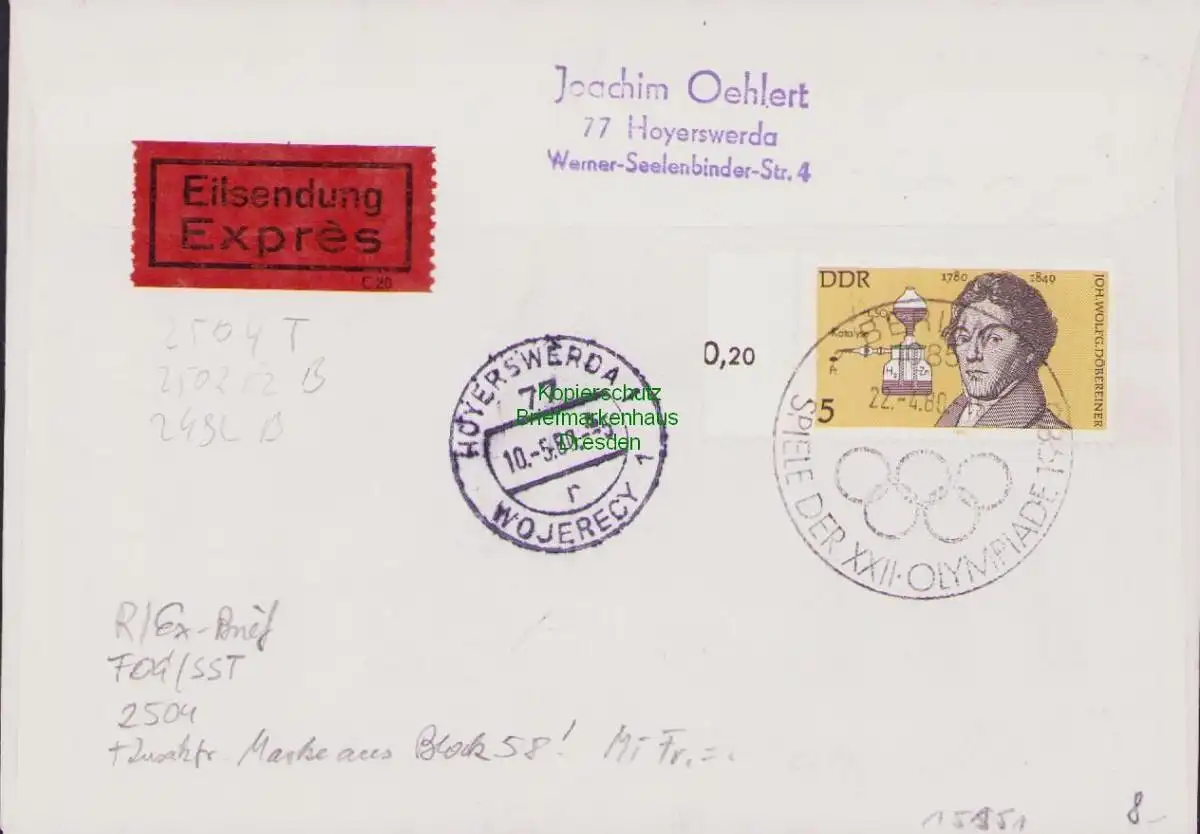 Joachim Oehlert
77 Hoyerswerda
Werner-Seelenbinder-Str. 4
Eilsendung
Exprès
C 20
2504 T
B
2492 B
0,20
DDR
1780 1849
JOH. WOLFG. DÖBEREINER
Katalyse
A
H₂ Zn
5
BERLIN
22.-4.80
SPIELE DER XXII. OLYMPIADE 1980
HOYERSWERDA
77
10.-5.80
r
WOJERECY 1
Kopierschutz
Briefmarkenhaus
Dresden
R/Ex-Brief
FDC/SST
2504
+Zusatzfr. Marke aus Block 58! Mi Fr. =.
15851
8_